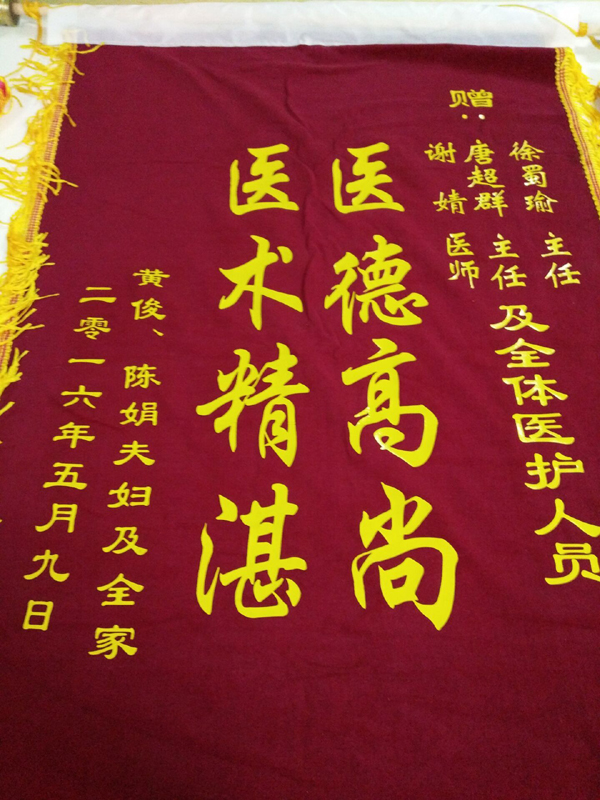 赠：
徐蜀瑜 主任
唐超群 主任
谢婧 医师
及全体医护人员
医德高尚
医术精湛
黄俊、陈娟夫妇及全家
二零一六年五月九日